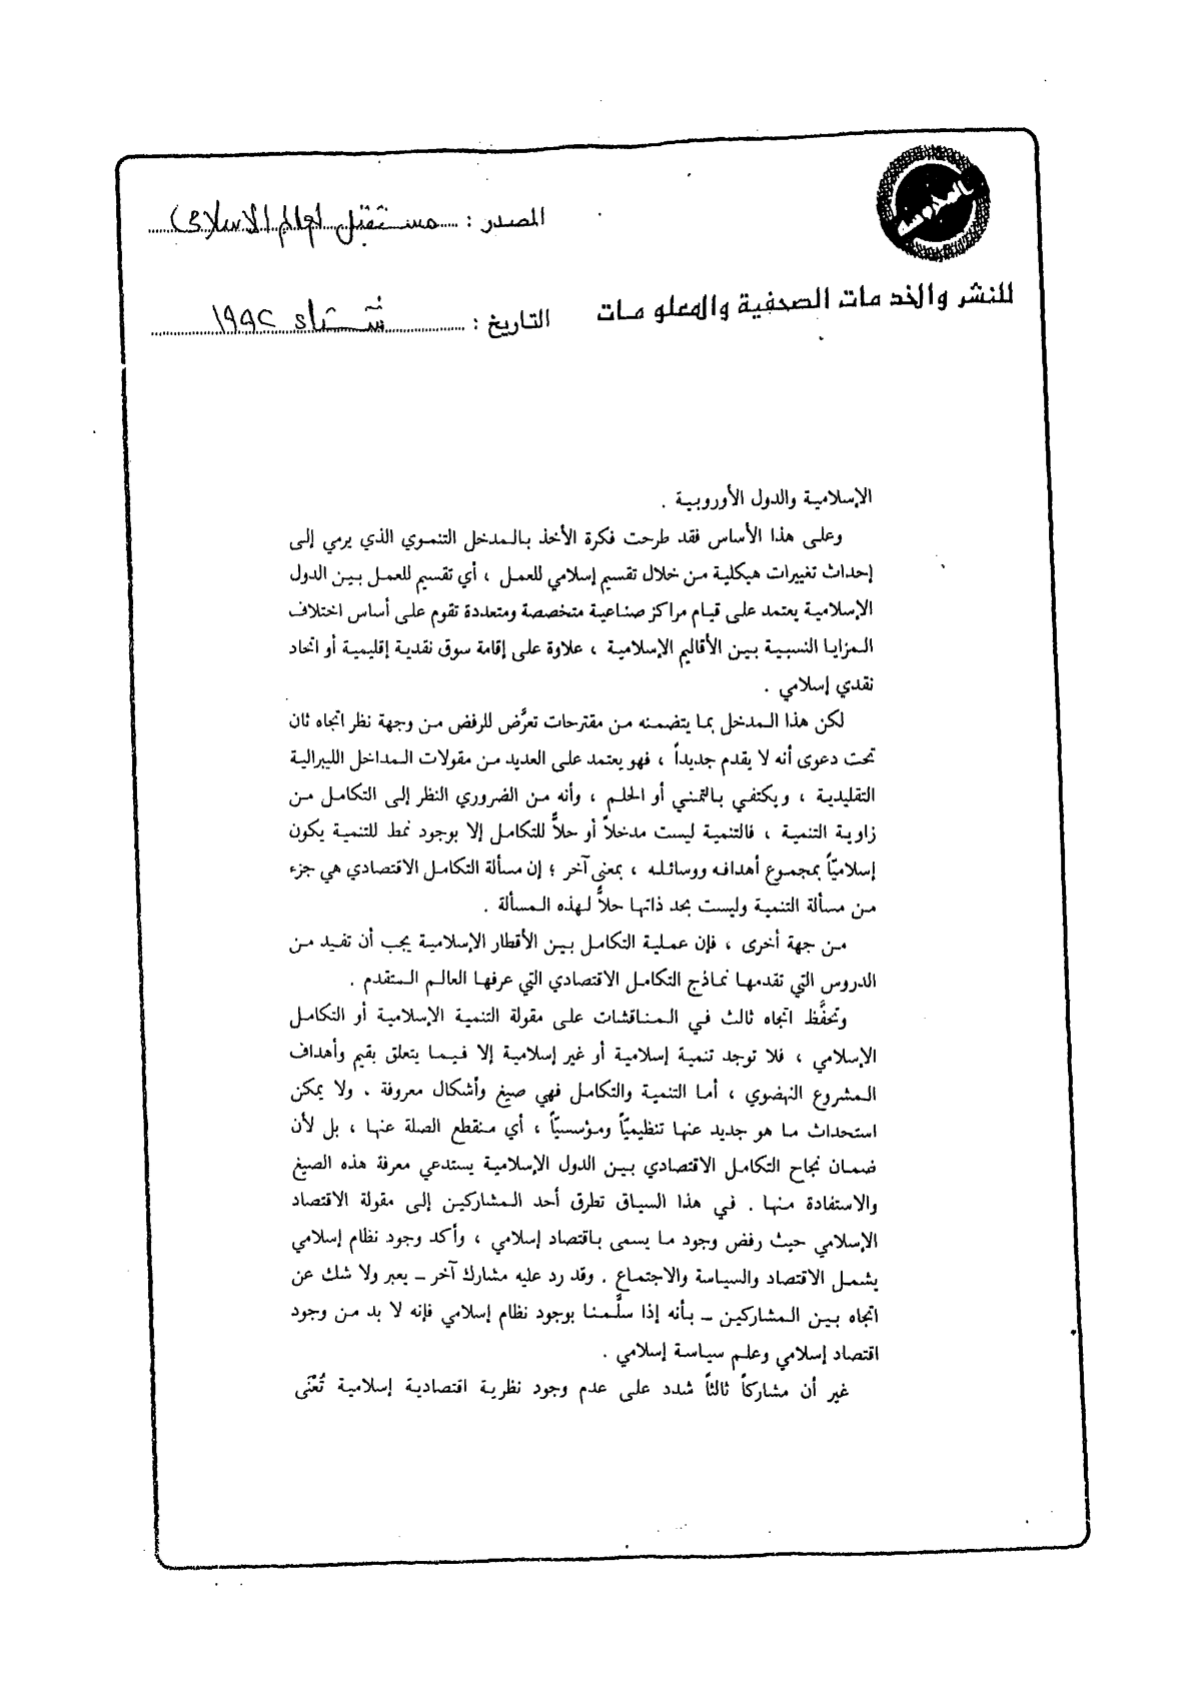 المصدر : مستقبل العالم الاسلامى
للنشر والخدمات الصحفية والمعلومات
التاريخ : شتاء ١٩٩٢
الإسلامية والدول الأوروبية .
وعلى هذا الأساس فقد طرحت فكرة الأخذ بالمدخل التنموي الذي يرمي إلى
إحداث تغييرات هيكلية من خلال تقسيم إسلامي للعمل ، أي تقسيم للعمل بين الدول
الإسلامية يعتمد على قيام مراكز صناعية متخصصة ومتعددة تقوم على أساس اختلاف
المزايا النسبية بين الأقاليم الإسلامية ، علاوة على إقامة سوق نقدية إقليمية أو اتحاد
نقدي إسلامي .
لكن هذا المدخل بما يتضمنه من مقترحات تعرَّض للرفض من وجهة نظر اتجاه ثان
تحت دعوى أنه لا يقدم جديداً ، فهو يعتمد على العديد من مقولات المداخل الليبرالية
التقليدية ، ويكتفي بالتمني أو الحلم ، وأنه من الضروري النظر إلى التكامل من
زاوية التنمية ، فالتنمية ليست مدخلاً أو حلاًّ للتكامل إلا بوجود نمط للتنمية يكون
إسلاميّاً بمجموع أهدافه ووسائله ، بمعنى آخر ؛ إن مسألة التكامل الاقتصادي هي جزء
من مسألة التنمية وليست بحد ذاتها حلاًّ لهذه المسألة .
من جهة أخرى ، فإن عملية التكامل بين الأقطار الإسلامية يجب أن تفيد من
الدروس التي تقدمها نماذج التكامل الاقتصادي التي عرفها العالم المتقدم .
وتحفَّظ اتجاه ثالث في المناقشات على مقولة التنمية الإسلامية أو التكامل
الإسلامي ، فلا توجد تنمية إسلامية أو غير إسلامية إلا فيما يتعلق بقيم وأهداف
المشروع النهضوي ، أما التنمية والتكامل فهي صيغ وأشكال معروفة . ولا يمكن
استحداث ما هو جديد عنها تنظيميّاً ومؤسسيّاً ، أي منقطع الصلة عنها ، بل لأن
ضمان نجاح التكامل الاقتصادي بين الدول الإسلامية يستدعي معرفة هذه الصيغ
والاستفادة منها . في هذا السياق تطرق أحد المشاركين إلى مقولة الاقتصاد
الإسلامي حيث رفض وجود ما يسمى باقتصاد إسلامي ، وأكد وجود نظام إسلامي
يشمل الاقتصاد والسياسة والاجتماع . وقد رد عليه مشارك آخر ـ يعبر ولا شك عن
اتجاه بين المشاركين ـ بأنه إذا سلَّمنا بوجود نظام إسلامي فإنه لا بد من وجود
اقتصاد إسلامي وعلم سياسة إسلامي .
غير أن مشاركاً ثالثاً شدد على عدم وجود نظرية اقتصادية إسلامية تُعْنَى